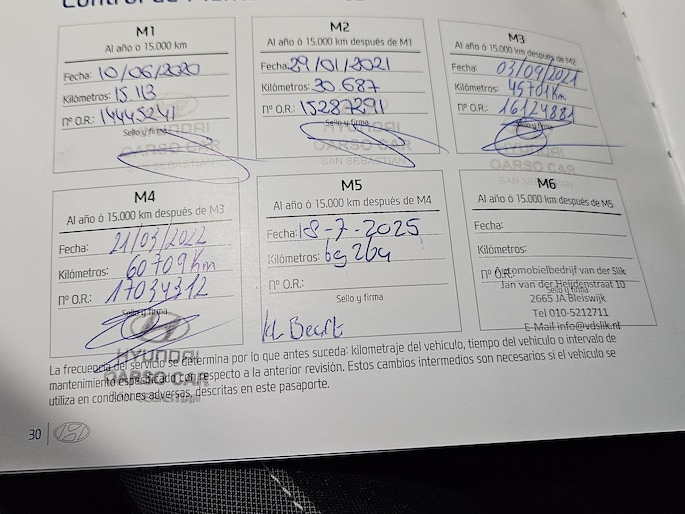 M1
Al año ó 15.000 km
Fecha: 10/06/2020
Kilómetros: 15.113
nº O.R.: 14445241
Sello y firma
HYUNDAI
OARSO CAR
SAN SEBASTIAN
M2
Al año ó 15.000 km después de M1
Fecha: 29/01/2021
Kilómetros: 30.687
nº O.R.: 15287291
Sello y firma
HYUNDAI
OARSO CAR
SAN SEBASTIAN
M3
Al año ó 15.000 km después de M2
Fecha: 03/09/2021
Kilómetros: 45701Km
nº O.R.: 16124881
Sello y firma
HYUNDAI
OARSO CAR
SAN SEBASTIAN
M4
Al año ó 15.000 km después de M3
Fecha: 21/03/2022
Kilómetros: 60709Km
nº O.R.: 17034312
Sello y firma
HYUNDAI
OARSO CAR
M5
Al año ó 15.000 km después de M4
Fecha: 18-7-2025
Kilómetros: 69264
nº O.R.:
Sello y firma
M6
Al año ó 15.000 km después de M5
Fecha:
Kilómetros:
nº O.R.:
Sello y firma
Automobielbedrijf van der Slik
Jan van der Heijdenstraat 10
2665 JA Bleiswijk
Tel 010-5212711
E-Mail info@vdslik.nl
La frecuencia del servicio se determina por lo que antes suceda: kilometraje del vehículo, tiempo del vehículo o intervalo de
mantenimiento especificado con respecto a la anterior revisión. Estos cambios intermedios son necesarios si el vehículo se
utiliza en condiciones adversas, descritas en este pasaporte.
30